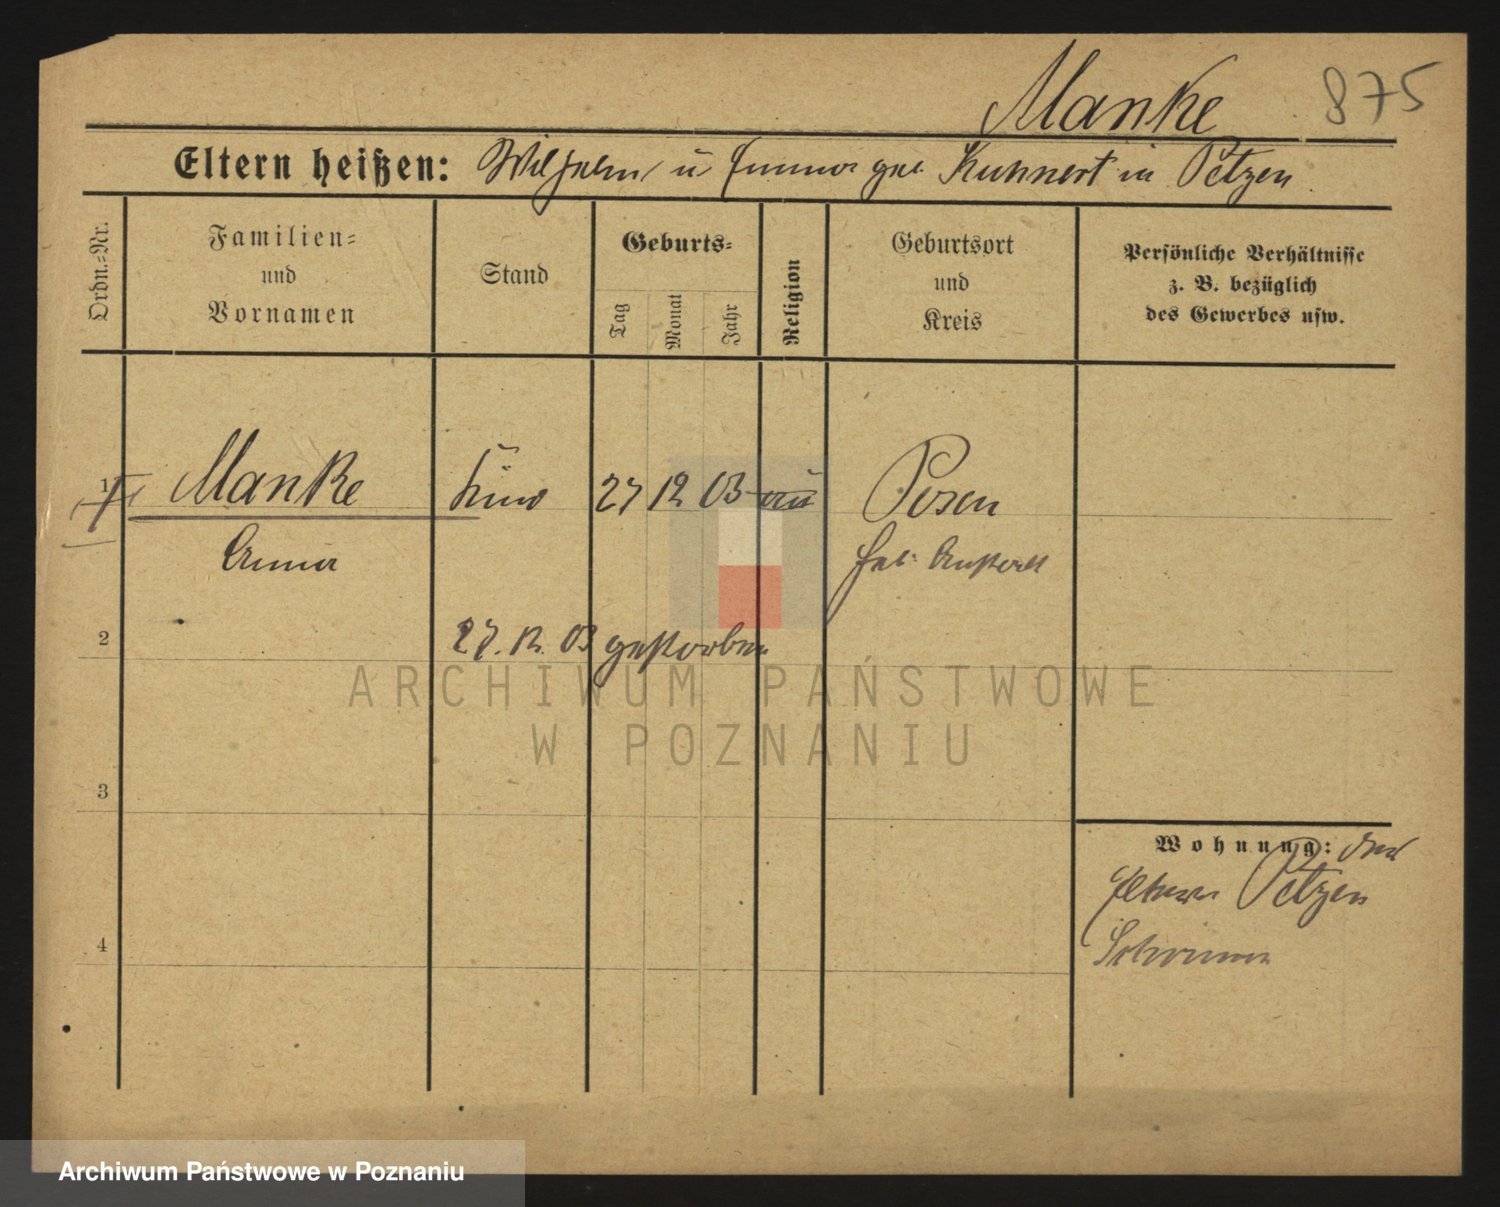 Manke 875
Eltern heißen: Wilhelm u Emma geb. Kuhnert in Petzen
Ordn.-Nr.
Familien- und Vornamen
Stand
Geburts-
Tag
Monat
Jahr
Religion
Geburtsort und Kreis
Persönliche Verhältnisse z. B. bezüglich des Gewerbes usw.
1 Manke Kind 27 12 03 Posen
Anna
2 27. 12. 03 gestorben
3
Wohnung: der
Eltern Petzen
4
ARCHIWUM PAŃSTWOWE
W POZNANIU
Archiwum Państwowe w Poznaniu